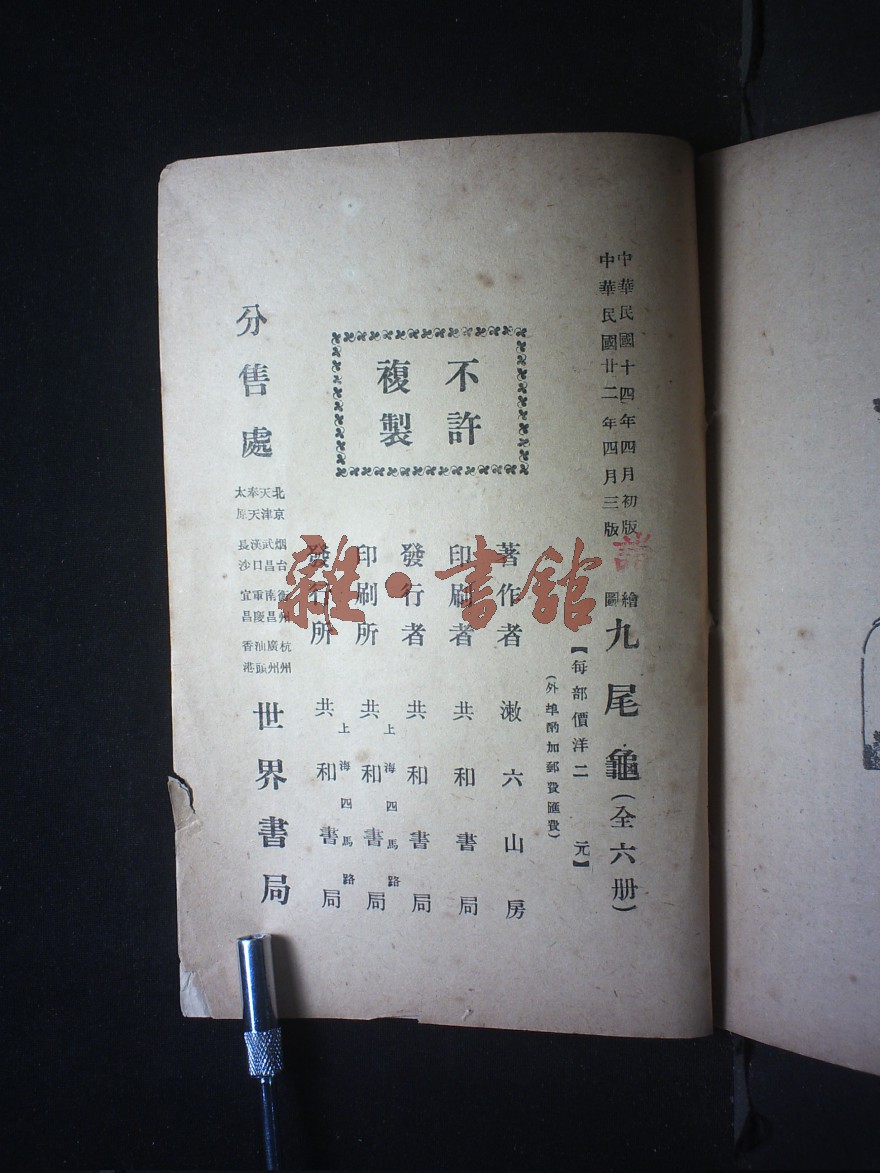 中華民國十四年四月初版
中華民國廿二年四月三版
繪圖九尾龜(全六册)
【每部價洋二元】
(外埠酌加郵費匯費)
不許
複製
著作者 漱六山房
印刷者 共和書局
發行者 共和書局
印刷所 上海四馬路 共和書局
發行所 上海四馬路 共和書局
分售處
北京 天津 奉天 太原
烟台 武昌 漢口 長沙
衡州 南昌 重慶 宜昌
杭州 廣州 汕頭 香港
世界書局
雜·書館